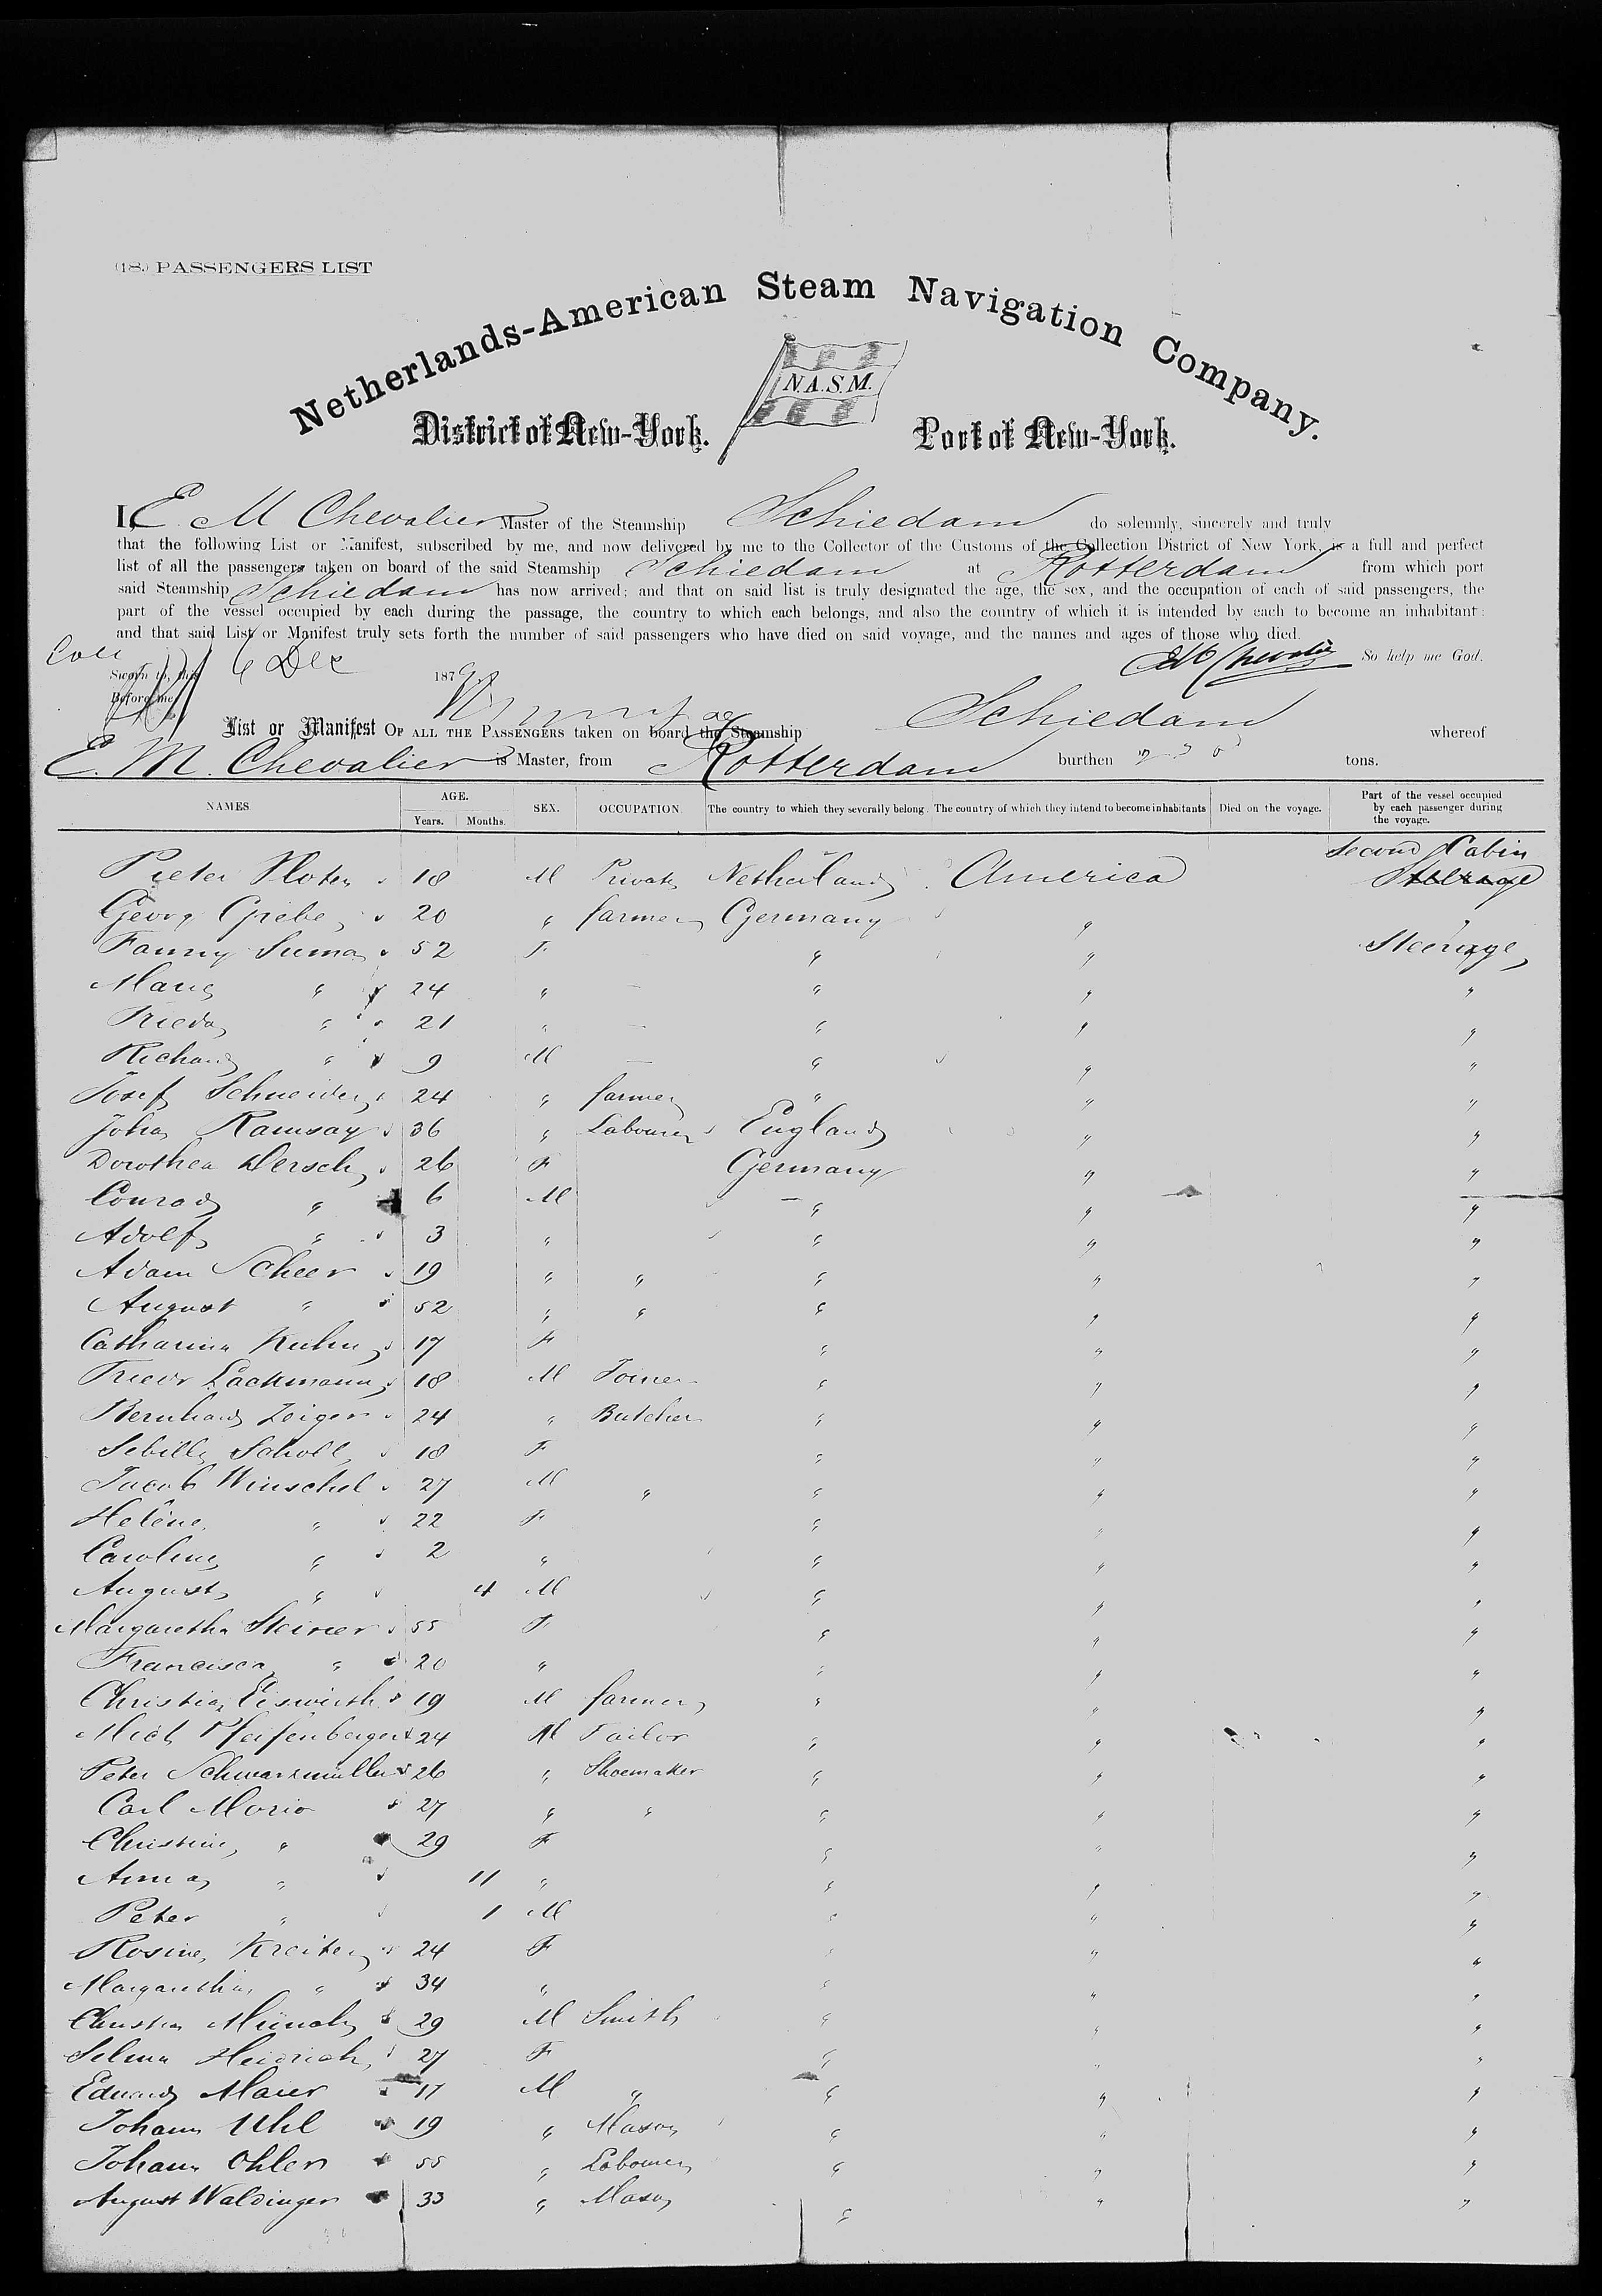 (18.) PASSENGERS LIST
Netherlands-American Steam Navigation Company.
N.A.S.M.
District of New-York. Port of New-York.
I, E. M Chevalier Master of the Steamship Schiedam do solemnly, sincerely and truly
that the following List or Manifest, subscribed by me, and now delivered by me to the Collector of the Customs of the Collection District of New York, is a full and perfect
list of all the passengers taken on board of the said Steamship Schiedam at Rotterdam from which port
said Steamship Schiedam has now arrived; and that on said list is truly designated the age, the sex, and the occupation of each of said passengers, the
part of the vessel occupied by each during the passage, the country to which each belongs, and also the country of which it is intended by each to become an inhabitant:
and that said List or Manifest truly sets forth the number of said passengers who have died on said voyage, and the names and ages of those who died.
Sworn to, this 6 Dec 1879 EM Chevalier So help me God.
Before me
List or Manifest OF ALL THE PASSENGERS taken on board the Steamship Schiedam whereof
E. M. Chevalier is Master, from Rotterdam burthen tons.
NAMES AGE. Years. Months. SEX. OCCUPATION The country to which they severally belong. The country of which they intend to become inhabitants Died on the voyage. Part of the vessel occupied by each passenger during the voyage.
Second Cabin
Pieter 18 M Private Netherlands America Steerage
Georg Griebe 20 " farmer Germany " "
Fanny Suma 52 F " " Steerage
Marie " 24 " — " " "
Frieda " 21 " — " " "
Richard " 9 M — " " "
Josef Schneider 24 " farmer " " "
John Ramsay 36 " Labourer England " "
Dorothea Dersch 26 F Germany " "
Conrad " 6 M — " " "
Adolf " 3 " " " "
Adam Scheer 19 " " " " "
August " 52 " " " " "
Catharina Kuhn 17 F " " "
Friedr Lackmann 18 M Joiner " " "
Bernhard Zeiger 24 " Butcher " " "
Sibilla Scholl 18 F " " "
Jacob Winschel 27 M " " " "
Helène " 22 F " " "
Caroline " 2 " " " "
August " 4 M " " "
Margaretha Steiner 55 F " " "
Francisca " 20 " " " "
Christian Eiswirth 19 M farmer " " "
Mich Pfeifenberger 24 M Tailor " " "
Peter Schwarzmüller 26 " Shoemaker " " "
Carl Morio 27 " " " " "
Christine " 29 F " " "
Anna " 11 " " " "
Peter " 1 M " " "
Rosine Kreiter 24 F " " "
Margaretha " 34 " " " "
Christian Münch 29 M Smith " " "
Selma Heidrich 27 F " " "
Eduard Maier 17 M " " " "
Johann Uhl 19 " Mason " " "
Johann Ohler 55 " Labourer " " "
August Waldinger 33 " Mason " " "